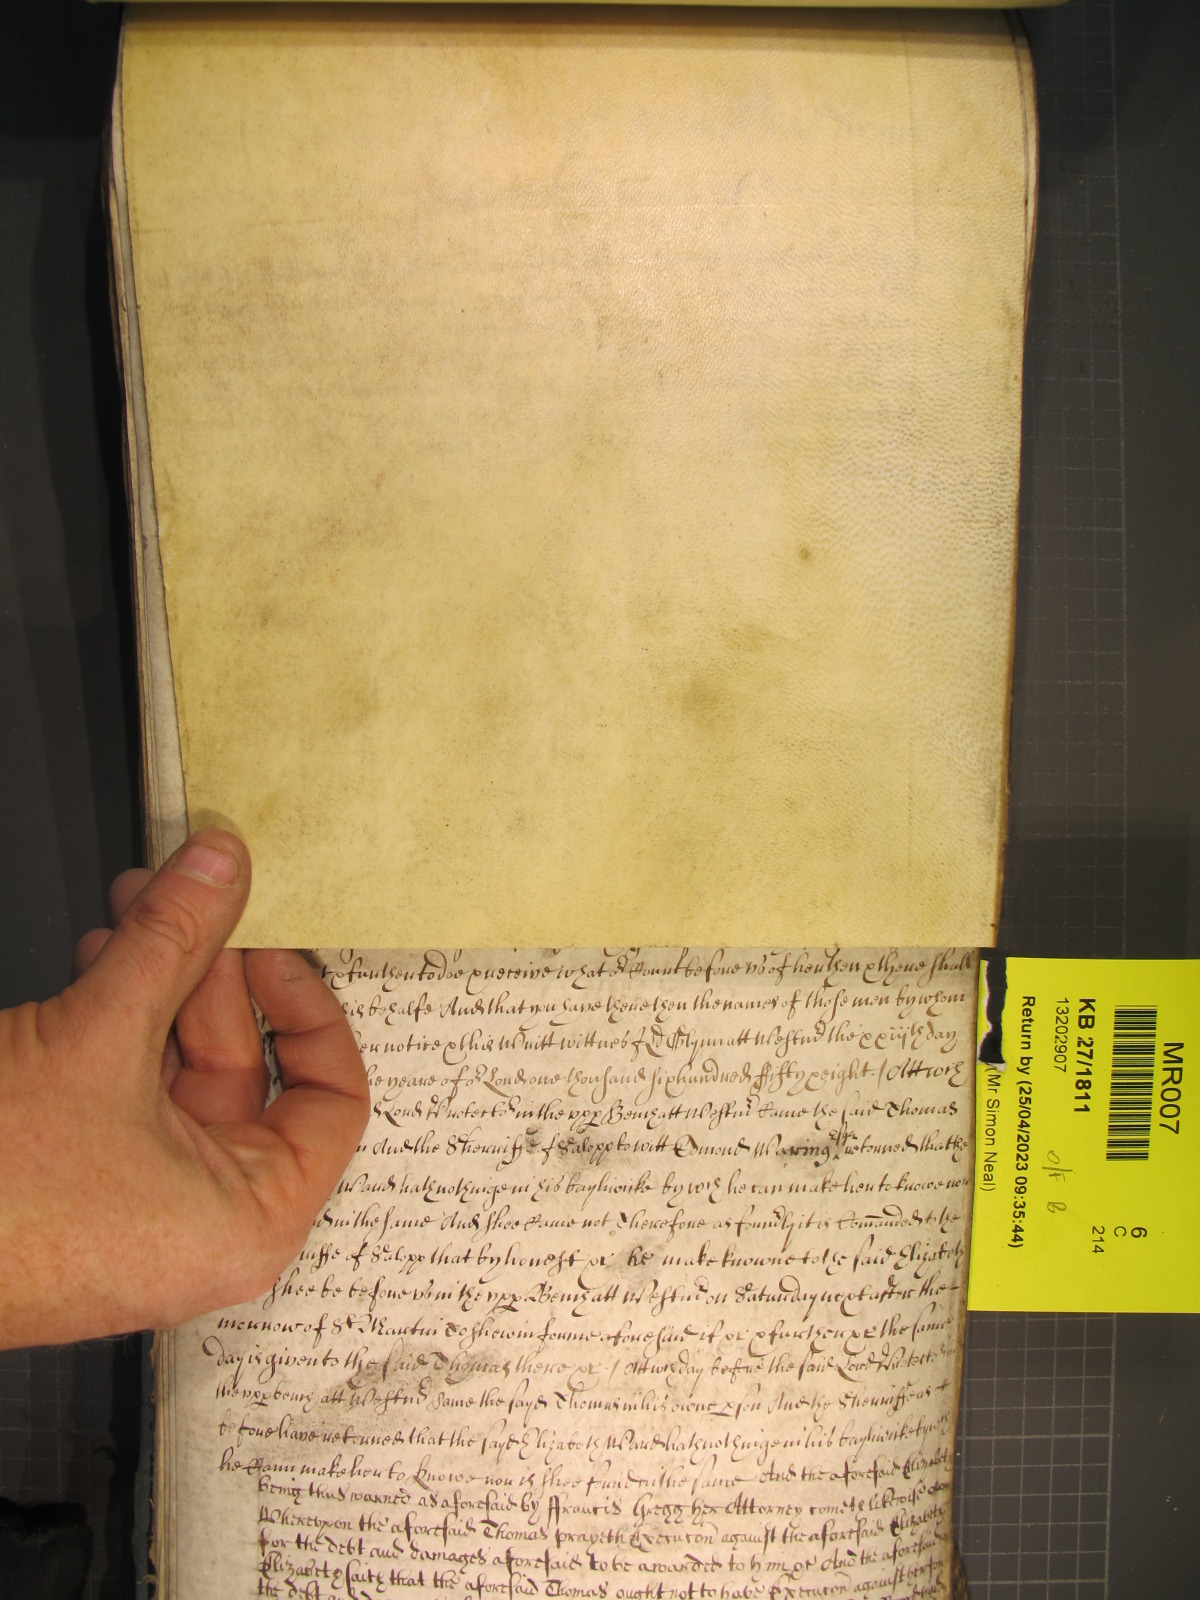 further to doe & receive what or Court before us of her then & there shall
his behalfe And that you have there then the names of those men by whom
her notice & this Writt wittnes J Glynn att Westmr the xxiijth day
the yeare of or Lord one thousand six hundred fifty & eight / Att wch
Lord Protector in the upp Bench att Westmr came the said Thomas
And the Sherriffe of Salopp to witt Edmond Waring Esqr returned that the
Ward hath nothinge in his bayliwicke by wch he can make her to knowe nor
in the same And shee came not Therefore as formly it is Comanded to the
riffe of Salopp that by honest &c he make knowne to the said Elizabeth
shee be before us in the upp Bench att Westmr on Saturday next after the
morrow of St Martin To shew in forme aforesaid if &c & further &c the same
day is given to the said Thomas there &c / Att wch day before the said Lord Protector in
the upp bench att Westmr Came the sayd Thomas in his owne pson And the Sherriffe as
before have returned that the sayd Elizabeth Ward hath nothinge in his bayliwicke by wch
he Cann make her to Knowe nor is shee found in the same And the aforesaid Elizabeth
being thus warned as aforesaid by Francis Gregg her Attorney cometh likewise
Whereupon the aforesaid Thomas prayeth Execucon against the aforesaid Elizabeth
for the debt and damages aforesaid to be awarded to him &c And the aforesaid
Elizabeth saith that the aforesaid Thomas ought not to have Execucon against her for
the debt
MR007
6
C
214
KB 27/1811
13202907
Return by (25/04/2023 09:35:44)
(Mr Simon Neal)